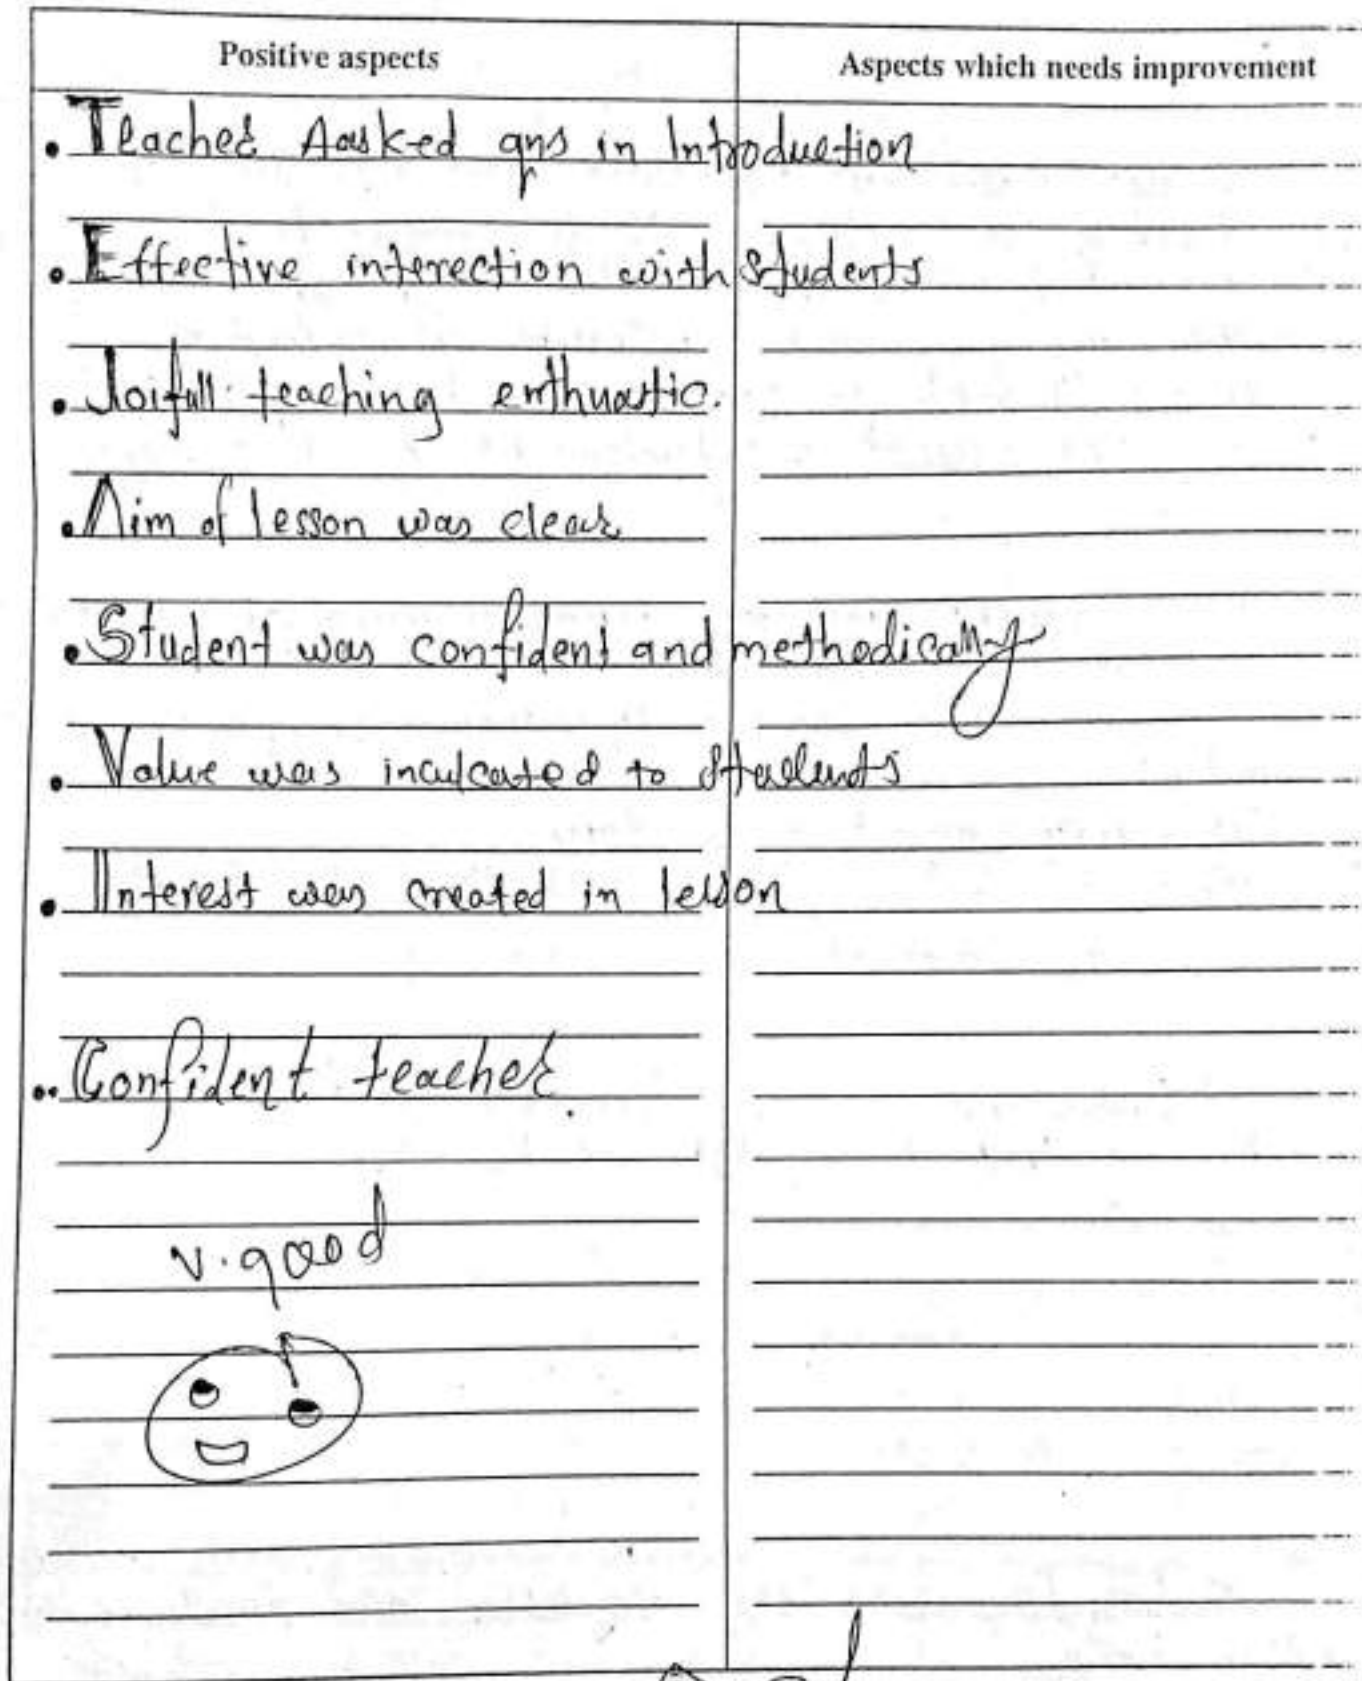 Positive aspects
Aspects which needs improvement
. Teacher Aasked qns in Introduction
. Effective interection with students
. Joifull teaching enthuastic.
. Aim of lesson was clear
. Student was confident and methodically
. Value was inculcated to students
. Interest was created in lesson
.. Confident teacher.
v. good